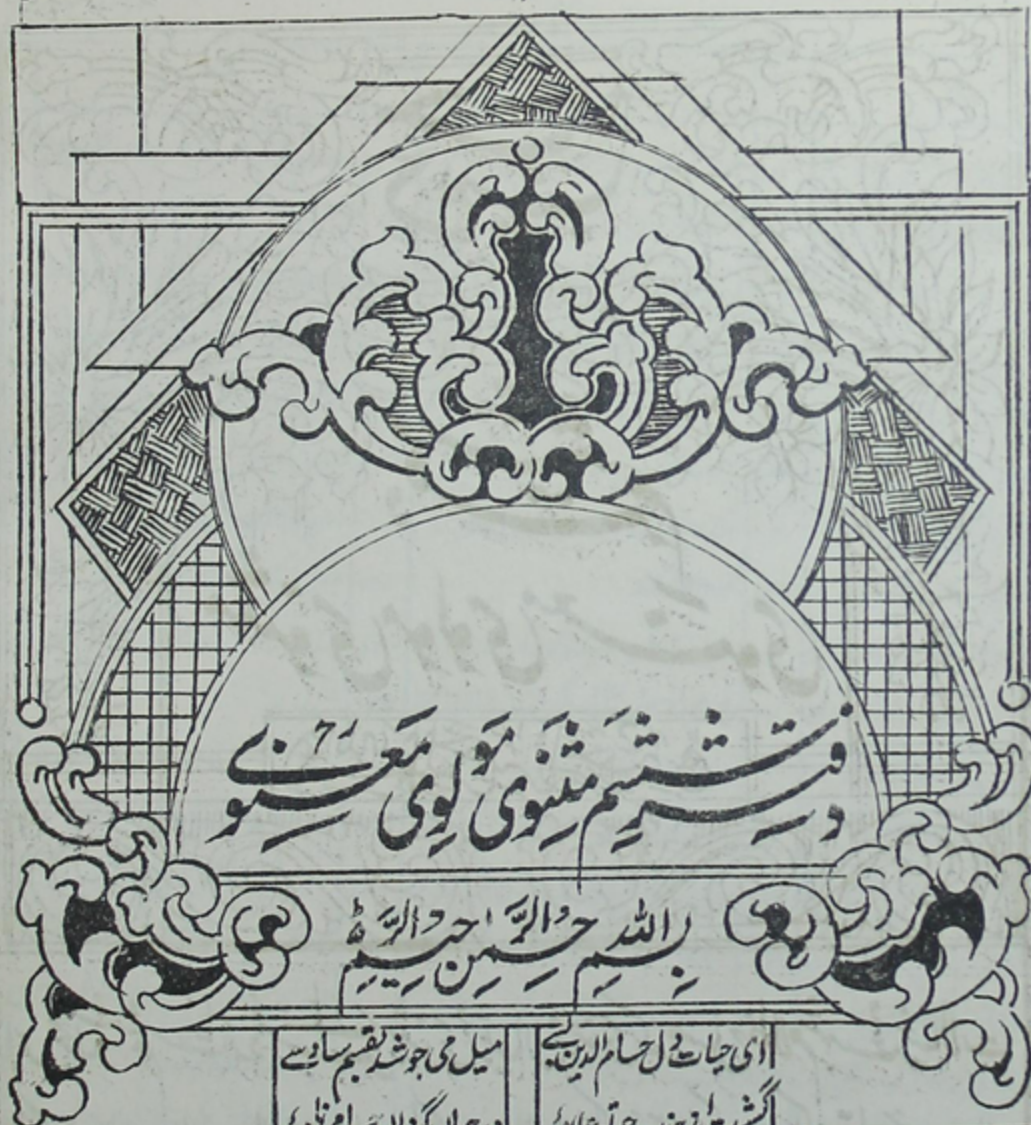 دفتر ششم مثنوی مولوی معنوی رح
بسم الله الرحمن الرحیم
ای حیات دل حسام الدین بسے
میل می جوشد بقسم سادسے